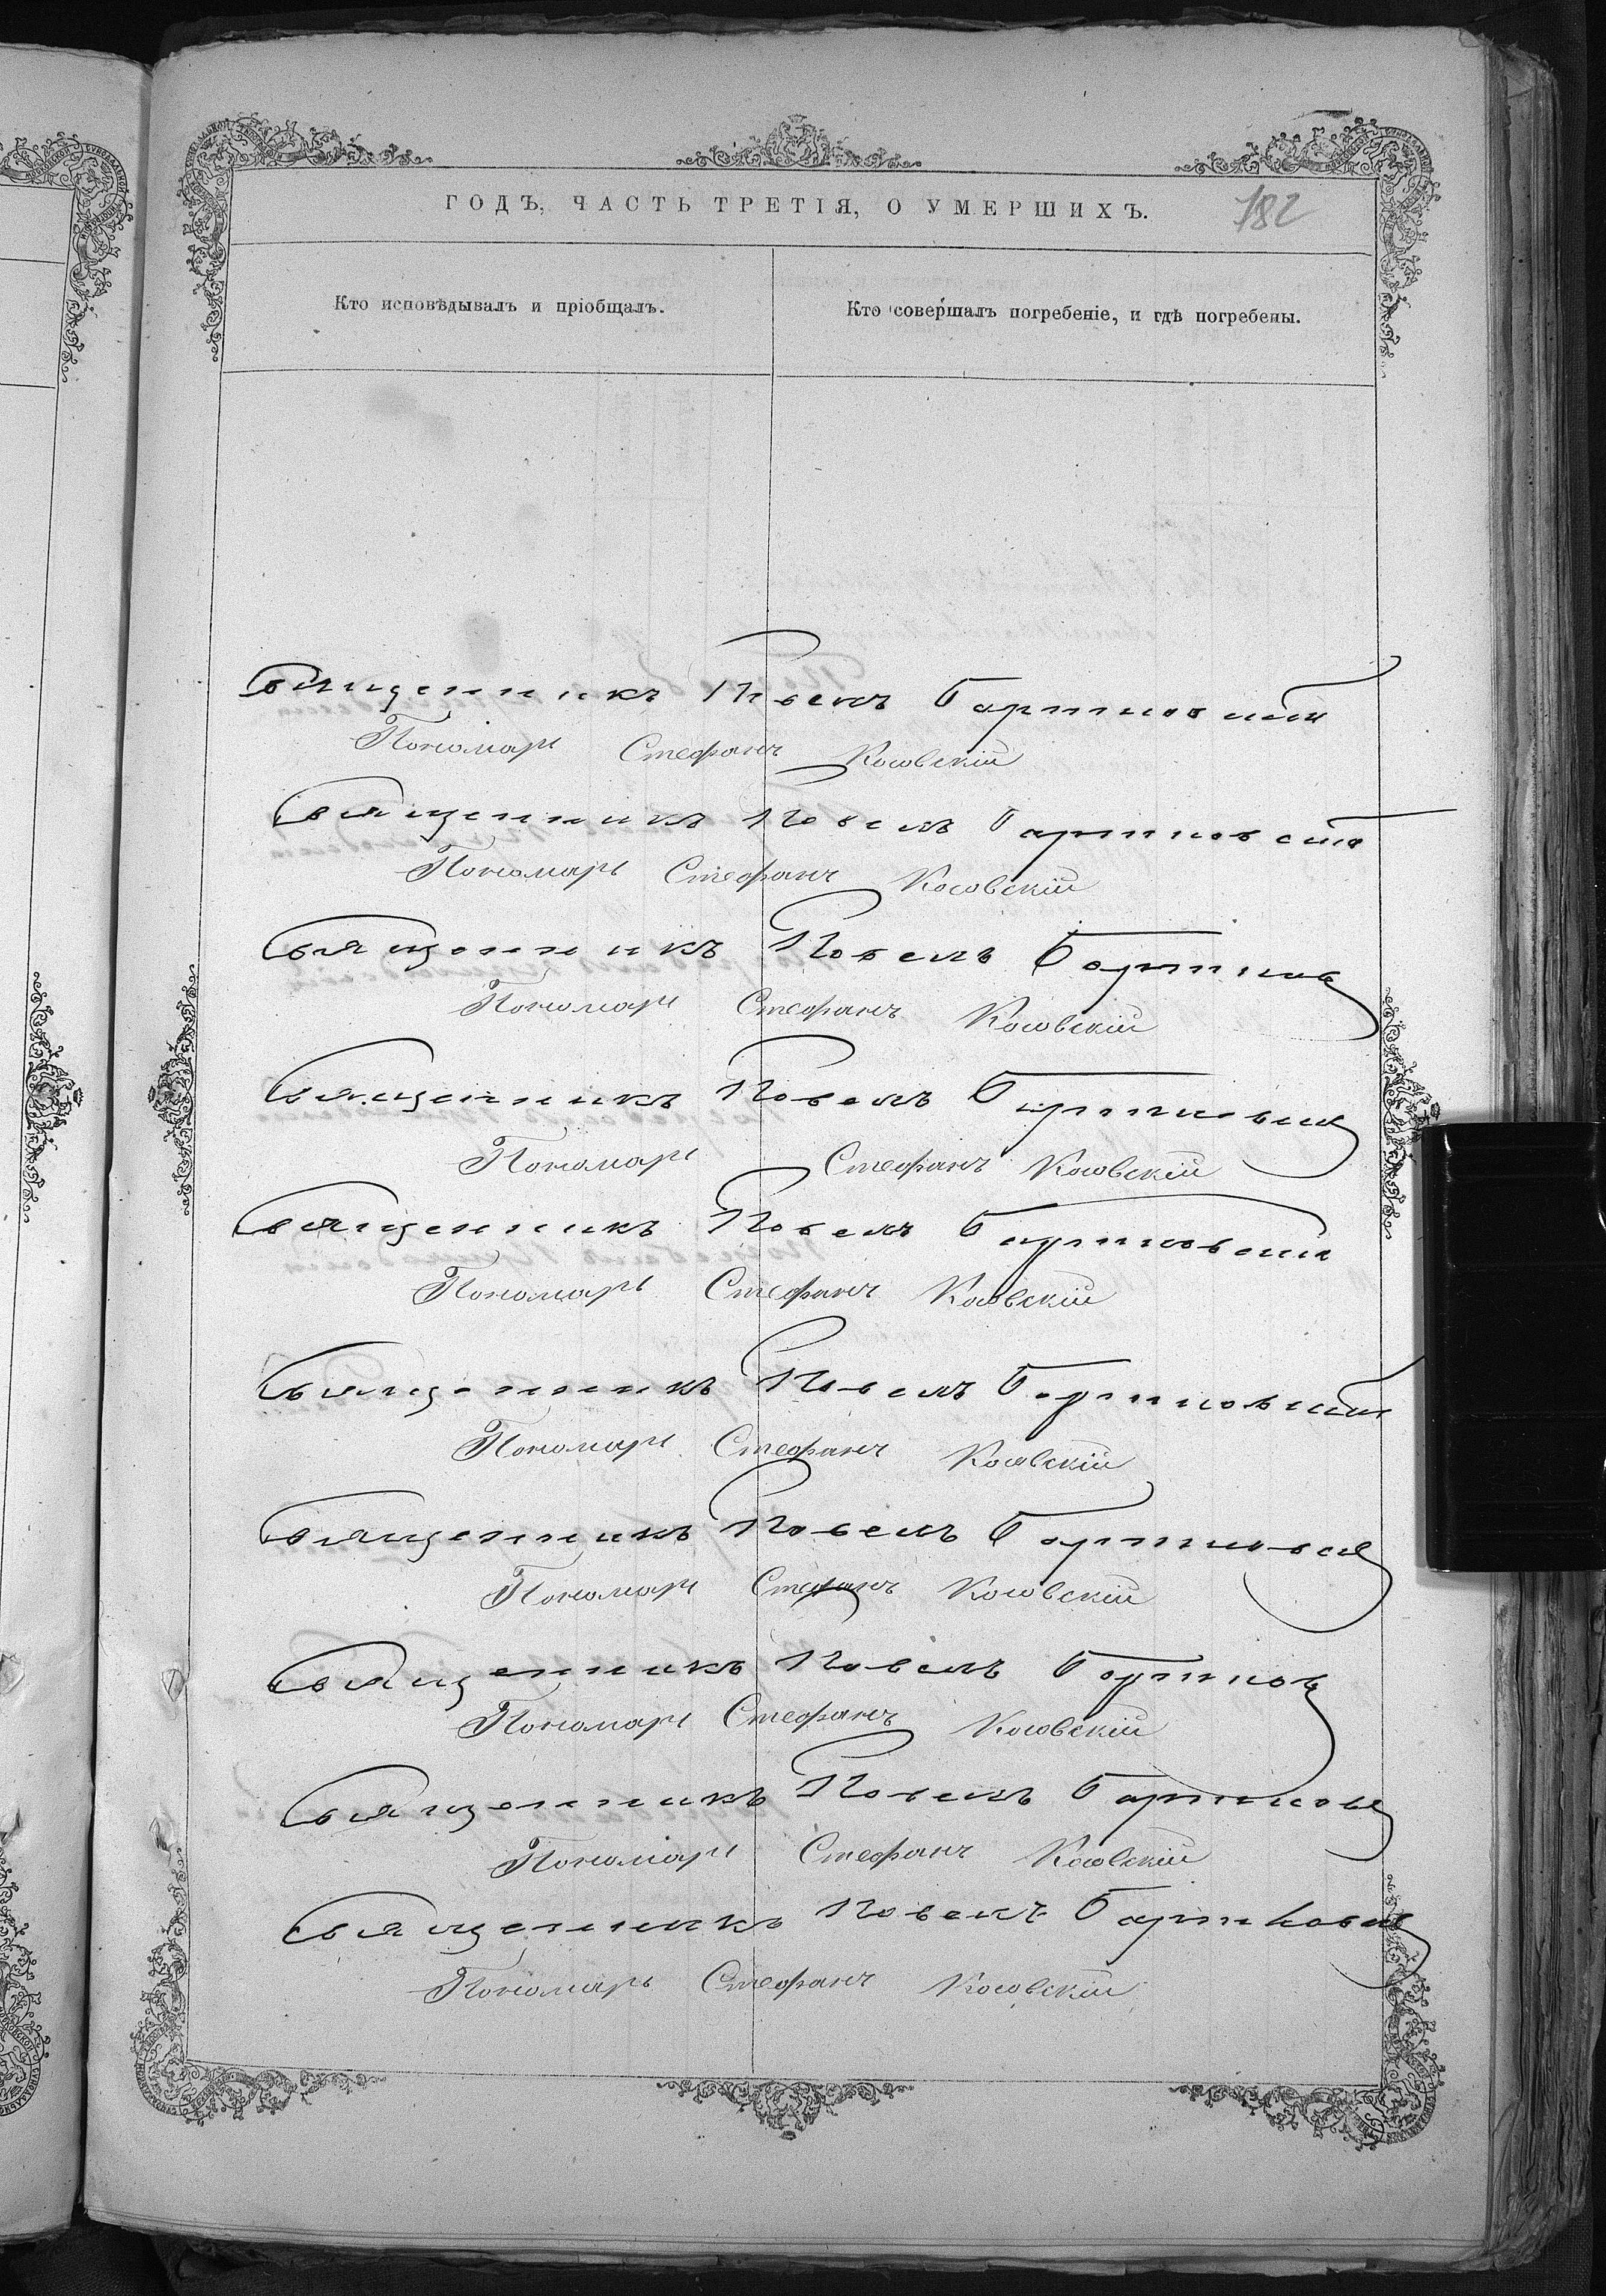 ГОДЪ, ЧАСТЬ ТРЕТІЯ, О УМЕРШИХЪ.
182
Кто исповѣдывалъ и пріобщалъ.
Кто совершалъ погребеніе, и гдѣ погребены.
Священникъ Павелъ Бартновскій
Пономарь Стефанъ Косовскій
Священникъ Павелъ Бартновскій
Пономарь Стефанъ Косовскій
Священникъ Павелъ Бартнов
Пономарь Стефанъ Косовскій
Священникъ Павелъ Бартновскій
Пономарь Стефанъ Косовскій
Священникъ Павелъ Бартновскій
Пономарь Стефанъ Косовскій
Священникъ Павелъ Бартновскій
Пономарь Стефанъ Косовскій
Священникъ Павелъ Бартновск
Пономарь Стефанъ Косовскій
Священникъ Павелъ Бартнов
Пономарь Стефанъ Косовскій
Священникъ Павелъ Бартнов
Пономарь Стефанъ Косовскій
Священникъ Павелъ Бартнов
Пономарь Стефанъ Косовскій